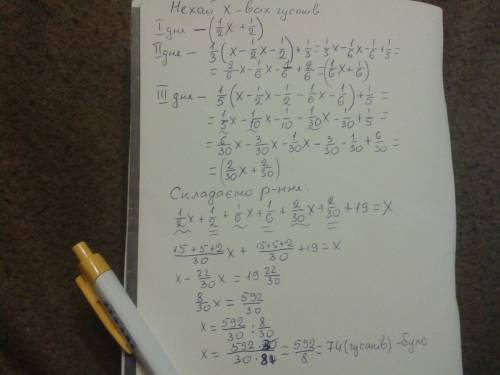 Нехай х - всіх гусаків
I дня - (1/2 х + 1/2)
II дня - 1/3 (х - 1/2 х - 1/2) + 1/3 = 1/3 х - 1/6 х - 1/6 + 1/3 =
= 2/6 х - 1/6 х - 1/6 + 2/6 = (1/6 х + 1/6)
III дня - 1/5 (х - 1/2 х - 1/2 - 1/6 х - 1/6) + 1/5 =
= 1/5 х - 1/10 х - 1/10 - 1/30 х - 1/30 + 1/5 =
= 6/30 х - 3/30 х - 1/30 х - 3/30 - 1/30 + 6/30 =
= (2/30 х + 2/30)
Складаємо р-ння:
1/2 х + 1/2 + 1/6 х + 1/6 + 2/30 х + 2/30 + 19 = х
15+5+2/30 х + 15+5+2/30 + 19 = х
х - 22/30 х = 19 22/30
8/30 х = 592/30
х = 592/30 : 8/30
х = 592·30/30·8 = 592/8 = 74 (гусаків) - було